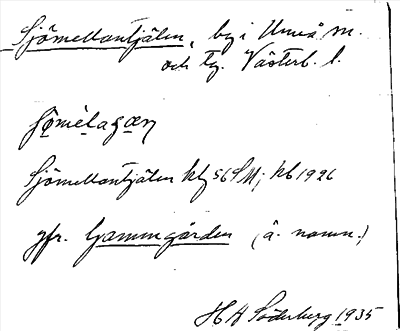 Sjömellantjälen, by i Umeå sn.
och tg. Västerb. l.
Sjömellantjälen kbg 56 SM; hb 1926
jfr. Gammgården (ä. namn.)
H A Söderberg 1935